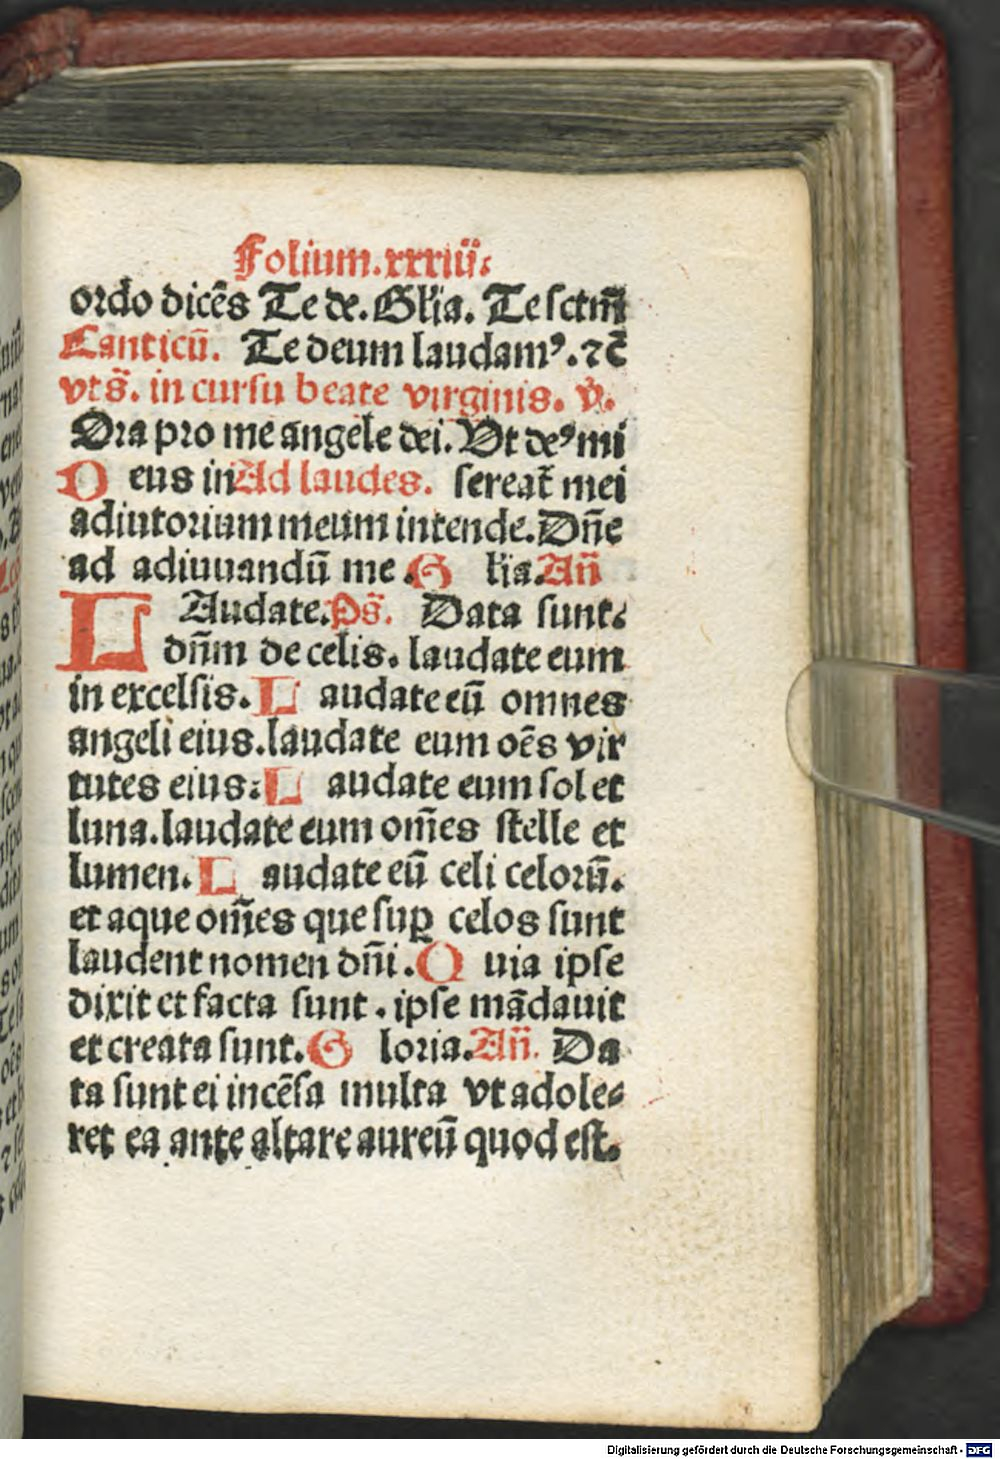 Folium.xxxiii:
ordo dicēs Te de. Gl'ia. Te sctm̄
Canticū. Te deum laudamꝰ. ⁊c̄
vts̄. in cursu beate virginis. v̄.
Ora pro me angele dei. Vt deꝰ mi
D eus in Ad laudes. sereat̄ mei
adiutorium meum intende. Dn̄e
ad adiuuandū me. G l'ia. An̄
L Audate. Ps̄. Data sunt:
dn̄m de celis. laudate eum
in excelsis. L audate eū omnes
angeli eius. laudate eum oēs vir
tutes eius: L audate eum sol et
luna. laudate eum om̄es stelle et
lumen. L audate eū celi celorū.
et aque om̄es que suꝑ celos sunt
laudent nomen dn̄i. Q uia ipse
dixit et facta sunt. ipse mādauit
et creata sunt. G loria. An̄. Da
ta sunt ei incēsa multa vt adole⸗
ret ea ante altare aureū quod est.
Digitalisierung gefördert durch die Deutsche Forschungsgemeinschaft - DFG